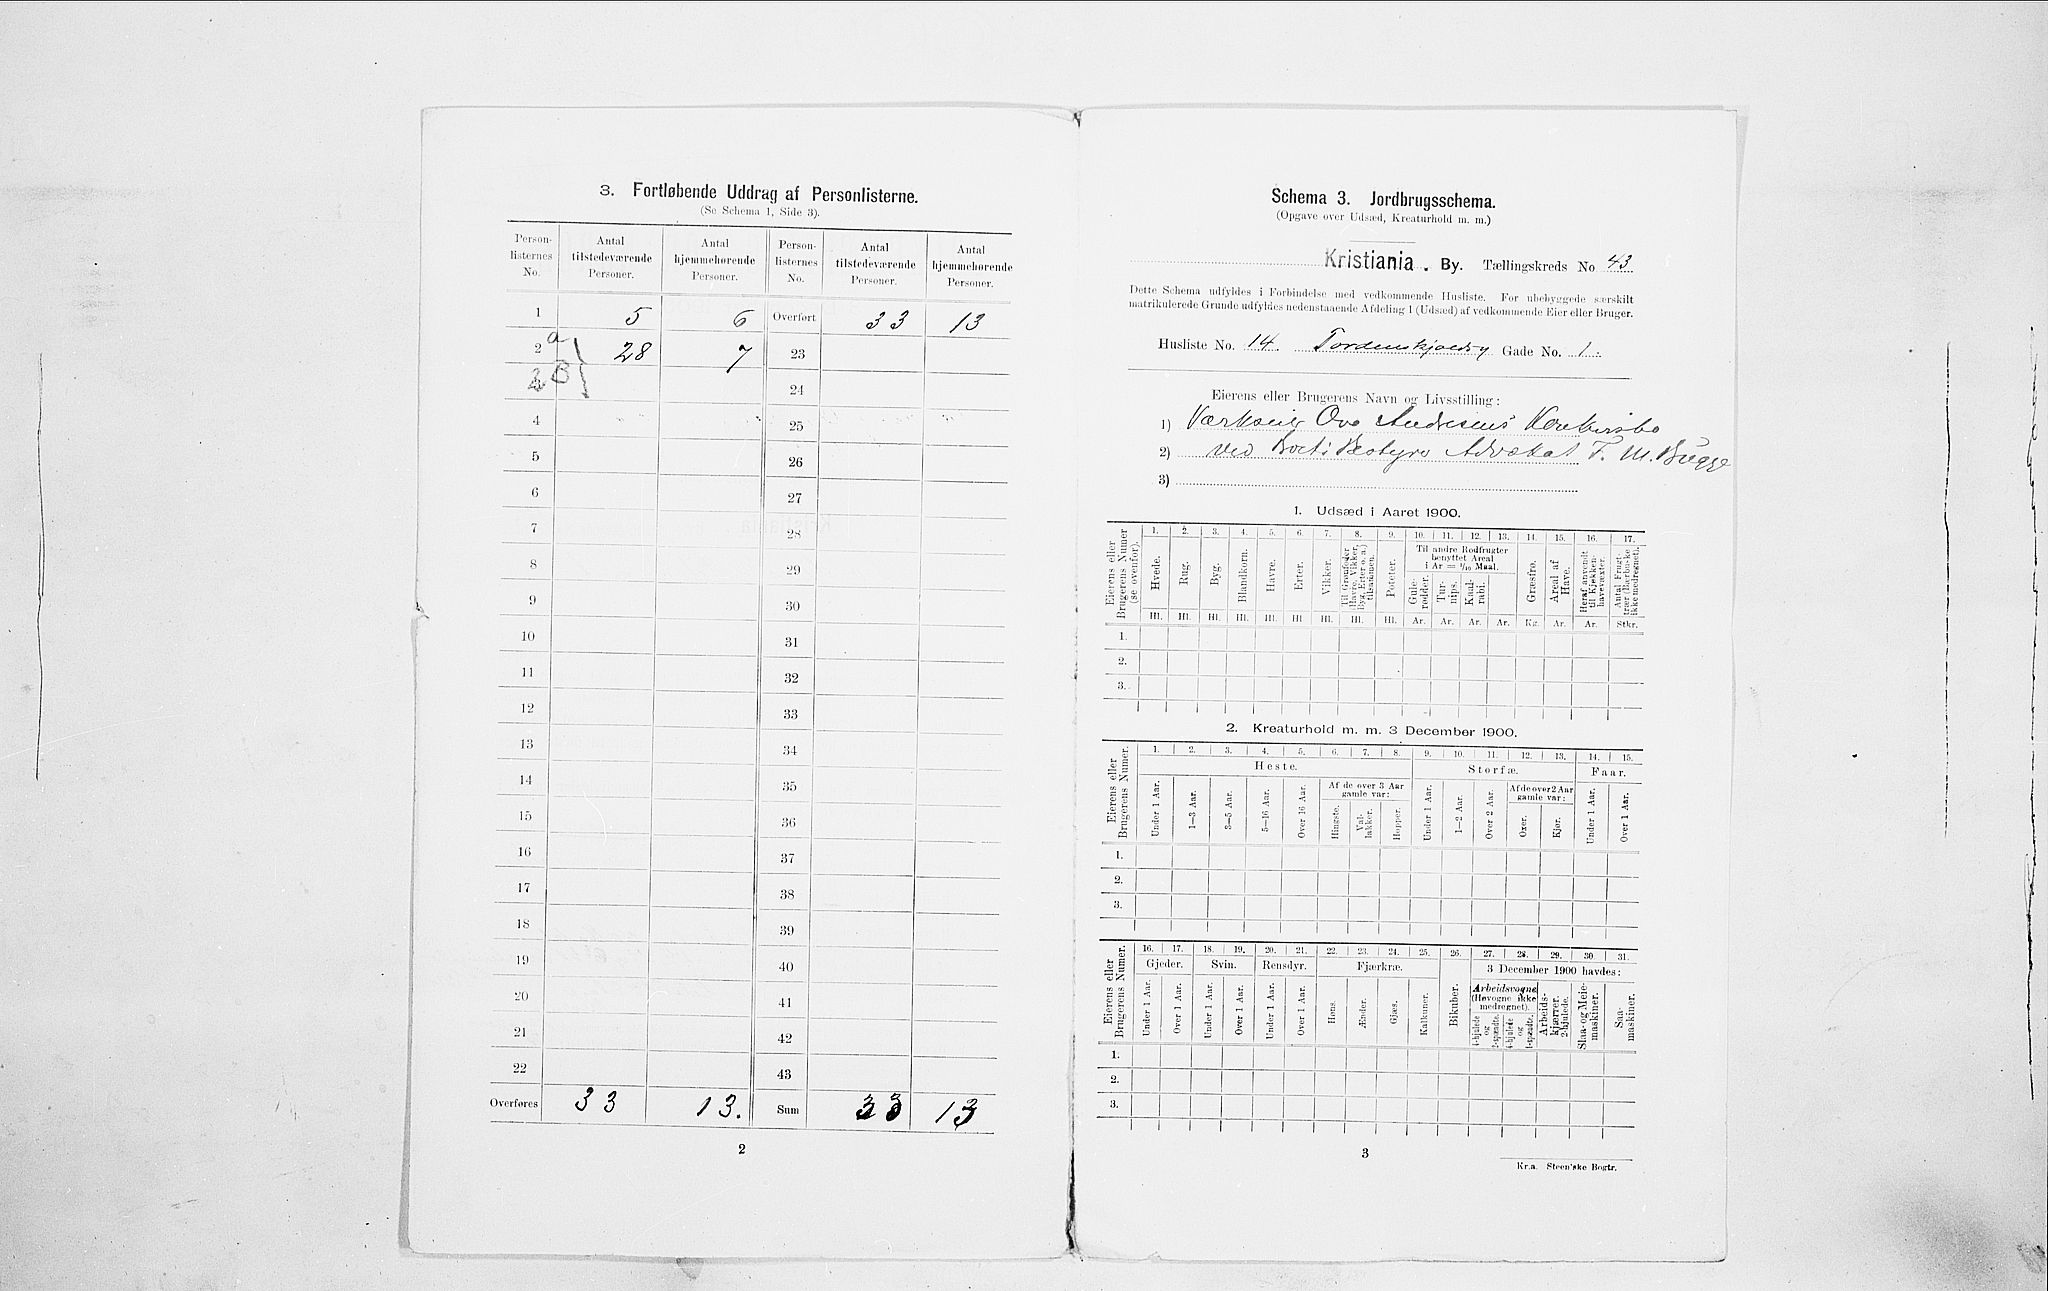 3. Fortløbende Uddrag af Personlisterne.
(Se Schema 1, Side 3).
Person-listernes No. | Antal tilstedeværende Personer. | Antal hjemmehørende Personer. | Person-listernes No. | Antal tilstedeværende Personer. | Antal hjemmehørende Personer.
1 | 5 | 6 | Overført | 33 | 13
2 a | 28 | 7 | 23
B | 24
4 | 25
5 | 26
6 | 27
7 | 28
8 | 29
9 | 30
10 | 31
11 | 32
12 | 33
13 | 34
14 | 35
15 | 36
16 | 37
17 | 38
18 | 39
19 | 40
20 | 41
21 | 42
22 | 43
Overføres | 33 | 13. | Sum | 33 | 13
2
Schema 3. Jordbrugsschema.
(Opgave over Udsæd, Kreaturhold m. m.)
Kristiania. By. Tællingskreds No 43
Dette Schema udfyldes i Forbindelse med vedkommende Husliste. For ubebyggede særskilt
matrikulerede Grunde udfyldes nedenstaaende Afdeling 1 (Udsæd) af vedkommende Eier eller Bruger.
Husliste No. 14. Tordenskjoldsg Gade No. 1.
Eierens eller Brugerens Navn og Livsstilling:
1) Værkseier Ove Andresens Konkursbo
2) ved Advokat F. M. Bugge
3)
1. Udsæd i Aaret 1900.
Eierens eller Brugerens Numer (se ovenfor).
1. 2. 3. 4. 5. 6. 7. 8. 9. 10. 11. 12. 13. 14. 15. 16. 17.
Hvede. Rug. Byg. Blandkorn. Havre. Erter. Vikker. Til Grønfoder Havre, Vikker, Byg, Erter o. a. tilsaamen. Poteter.
Til andre Rodfrugter benyttet Areal i Ar = 1/10 Maal.
Gulerødder. Turnips. Kaalrabi.
Græsfrø. Areal af Have. Heraf anvendt til Kjøkkenhavevæxter. Antal Frugttrær (Bærbuske ikke medregnet).
Hl. Hl. Hl. Hl. Hl. Hl. Hl. Hl. Hl. Ar. Ar. Ar. Ar. Kg. Ar. Ar. Stkr.
1.
2.
3.
2. Kreaturhold m. m. 3 December 1900.
Eierens eller Brugerens Numer.
1. 2. 3. 4. 5. 6. 7. 8. 9. 10. 11. 12. 13. 14. 15.
Heste. Storfæ. Faar.
Af de over 3 Aar gamle var: Af de over 2 Aar gamle var:
Under 1 Aar. 1—3 Aar. 3—5 Aar. 5—16 Aar. Over 16 Aar. Hingste. Vallakker. Hopper. Under 1 Aar. 1—2 Aar. Over 2 Aar. Oxer. Kjør. Under 1 Aar. Over 1 Aar.
1.
2.
3.
Eierens eller Brugerens Numer.
16. 17. 18. 19. 20. 21. 22. 23. 24. 25. 26. 27. 28. 29. 30. 31.
Gjeder. Svin. Rensdyr. Fjærkræ. 3 December 1900 havdes:
Under 1 Aar. Over 1 Aar. Under 1 Aar. Over 1 Aar. Under 1 Aar. Over 1 Aar. Høns. Ænder. Gjæs. Kalkuner. Bikuber.
Arbeidsvogne (Høvogne ikke medregnet).
4-hjulede og 2-spændte. 4-hjulede og 1-spændte. Arbeidskjærrer, 2-hjulede. Slaa- og Meiemaskiner. Saamaskiner.
1.
2.
3.
3
Kr.a. Steen'ske Bogtr.